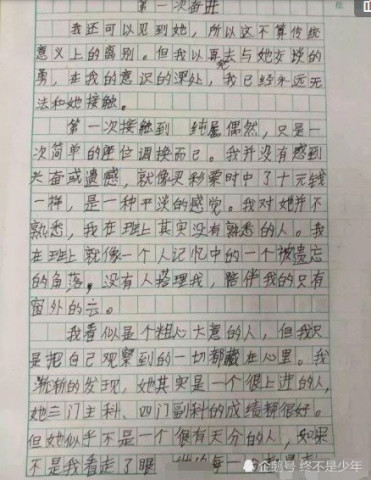 第一次离别
我还可以见到她，所以这不算传统
意义上的离别。但我以再去与她交谈的
勇，在我的意识的深处，我已经永远无
法和她接触。
第一次接触到 纯属偶然，只是一
次简单的座位调换而已。我并没有感到
兴奋或遗憾，就像买彩票时中了十元钱
一样，是一种平淡的感觉。我对她并不
熟悉，我在班上其实没有熟悉的人。我
在班上就像一个人记忆中的一个被遗忘
的角落，没有人搭理我，陪伴我的只有
窗外的云。
我看似是个粗心大意的人，但我只
是把自己观察到的一切都藏在心里。我
渐渐的发现，她其实是一个很上进的人，
她三门主科、四门副科的成绩都很好。
但她似乎不是一个很有天分的人，如果
不是我看走了眼 每一
企鹅号 终不是少年